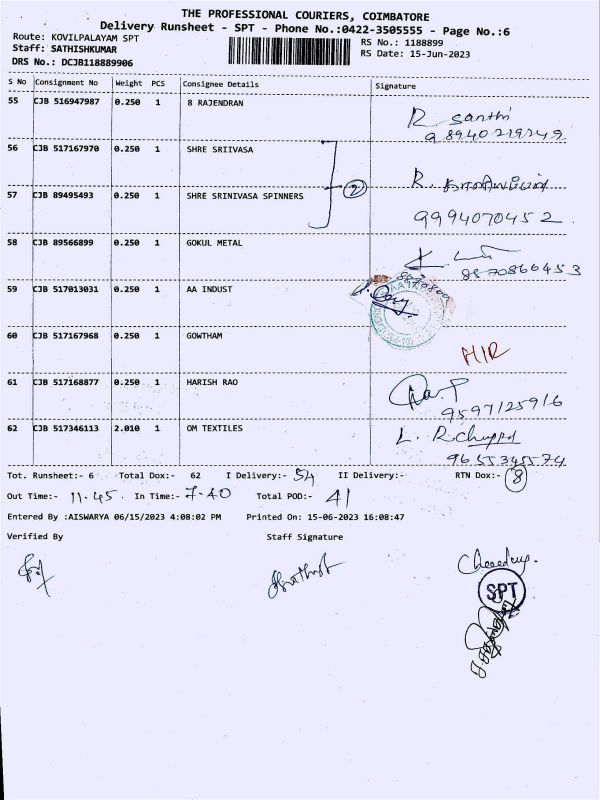 THE PROFESSIONAL COURIERS, COIMBATORE
Delivery Runsheet - SPT - Phone No.:0422-3505555 - Page No.:6
Route: KOVILPALAYAM SPT
RS No.: 1188899
Staff: SATHISHKUMAR
RS Date: 15-Jun-2023
DRS No.: DCJB118889906
S No Consignment No Weight PCS Consignee Details Signature
55 CJB 516947987 0.250 1 8 RAJENDRAN R Santhi
56 CJB 517167970 0.250 1 SHRE SRIIVASA R.
2
57 CJB 89495493 0.250 1 SHRE SRINIVASA SPINNERS 9994070452
58 CJB 89566899 0.250 1 GOKUL METAL
8870860453
59 CJB 517013031 0.250 1 AA INDUST
60 CJB 517167968 0.250 1 GOWTHAM
61 CJB 517168877 0.250 1 HARISH RAO
9597125916
62 CJB 517346113 2.010 1 OM TEXTILES L.
9655345574
Tot. Runsheet:- 6 Total Dox:- 62 I Delivery:- 54 II Delivery:- RTN Dox:- 8
Out Time:- 11.45 In Time:- 7-40 Total POD:- 41
Entered By :AISWARYA 06/15/2023 4:08:02 PM Printed On: 15-06-2023 16:08:47
Verified By Staff Signature
SPT